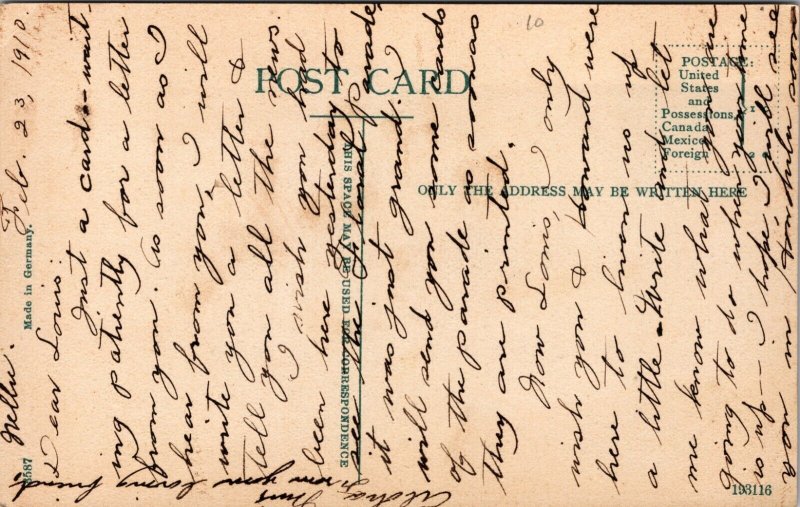 POST CARD
POSTAGE:
United
States
and
Possessions,
Canada
Mexico
Foreign
ONLY THE ADDRESS MAY BE WRITTEN HERE
THIS SPACE MAY BE USED FOR CORRESPONDENCE
Made in Germany.
193116
10
Feb. 23, 1910.
Dear Louis:
Just a card - wait-
ing patiently for a letter
from you. As soon as I
hear from you, I will
write you a letter &
tell you all the news.
I wish you had
been here yesterday to
see the Floral Parade,
it was just grand. I
will send you some cards
of the parade as soon as
they are printed.
Now Louis, I only
wish you & Howard were
here to liven us up
a little - Write and let
me know what you are
going to do when your time
is up - I hope I will see
you in Honolulu soon
Aloha,
from your loving friend,
Nellie.